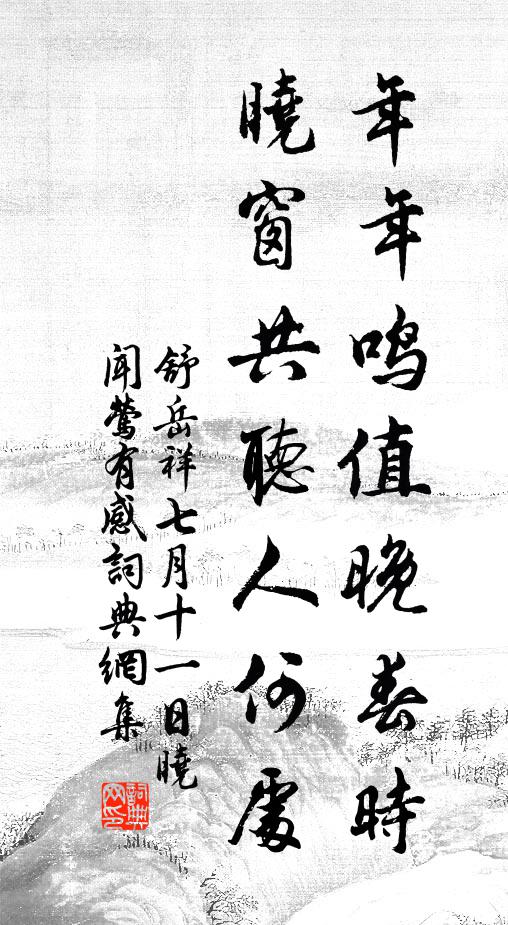 年年鸣值晚春時
曉窗共聽人何處
舒岳祥七月十一日曉
聞鶯有感詞典網集
詞典
网印